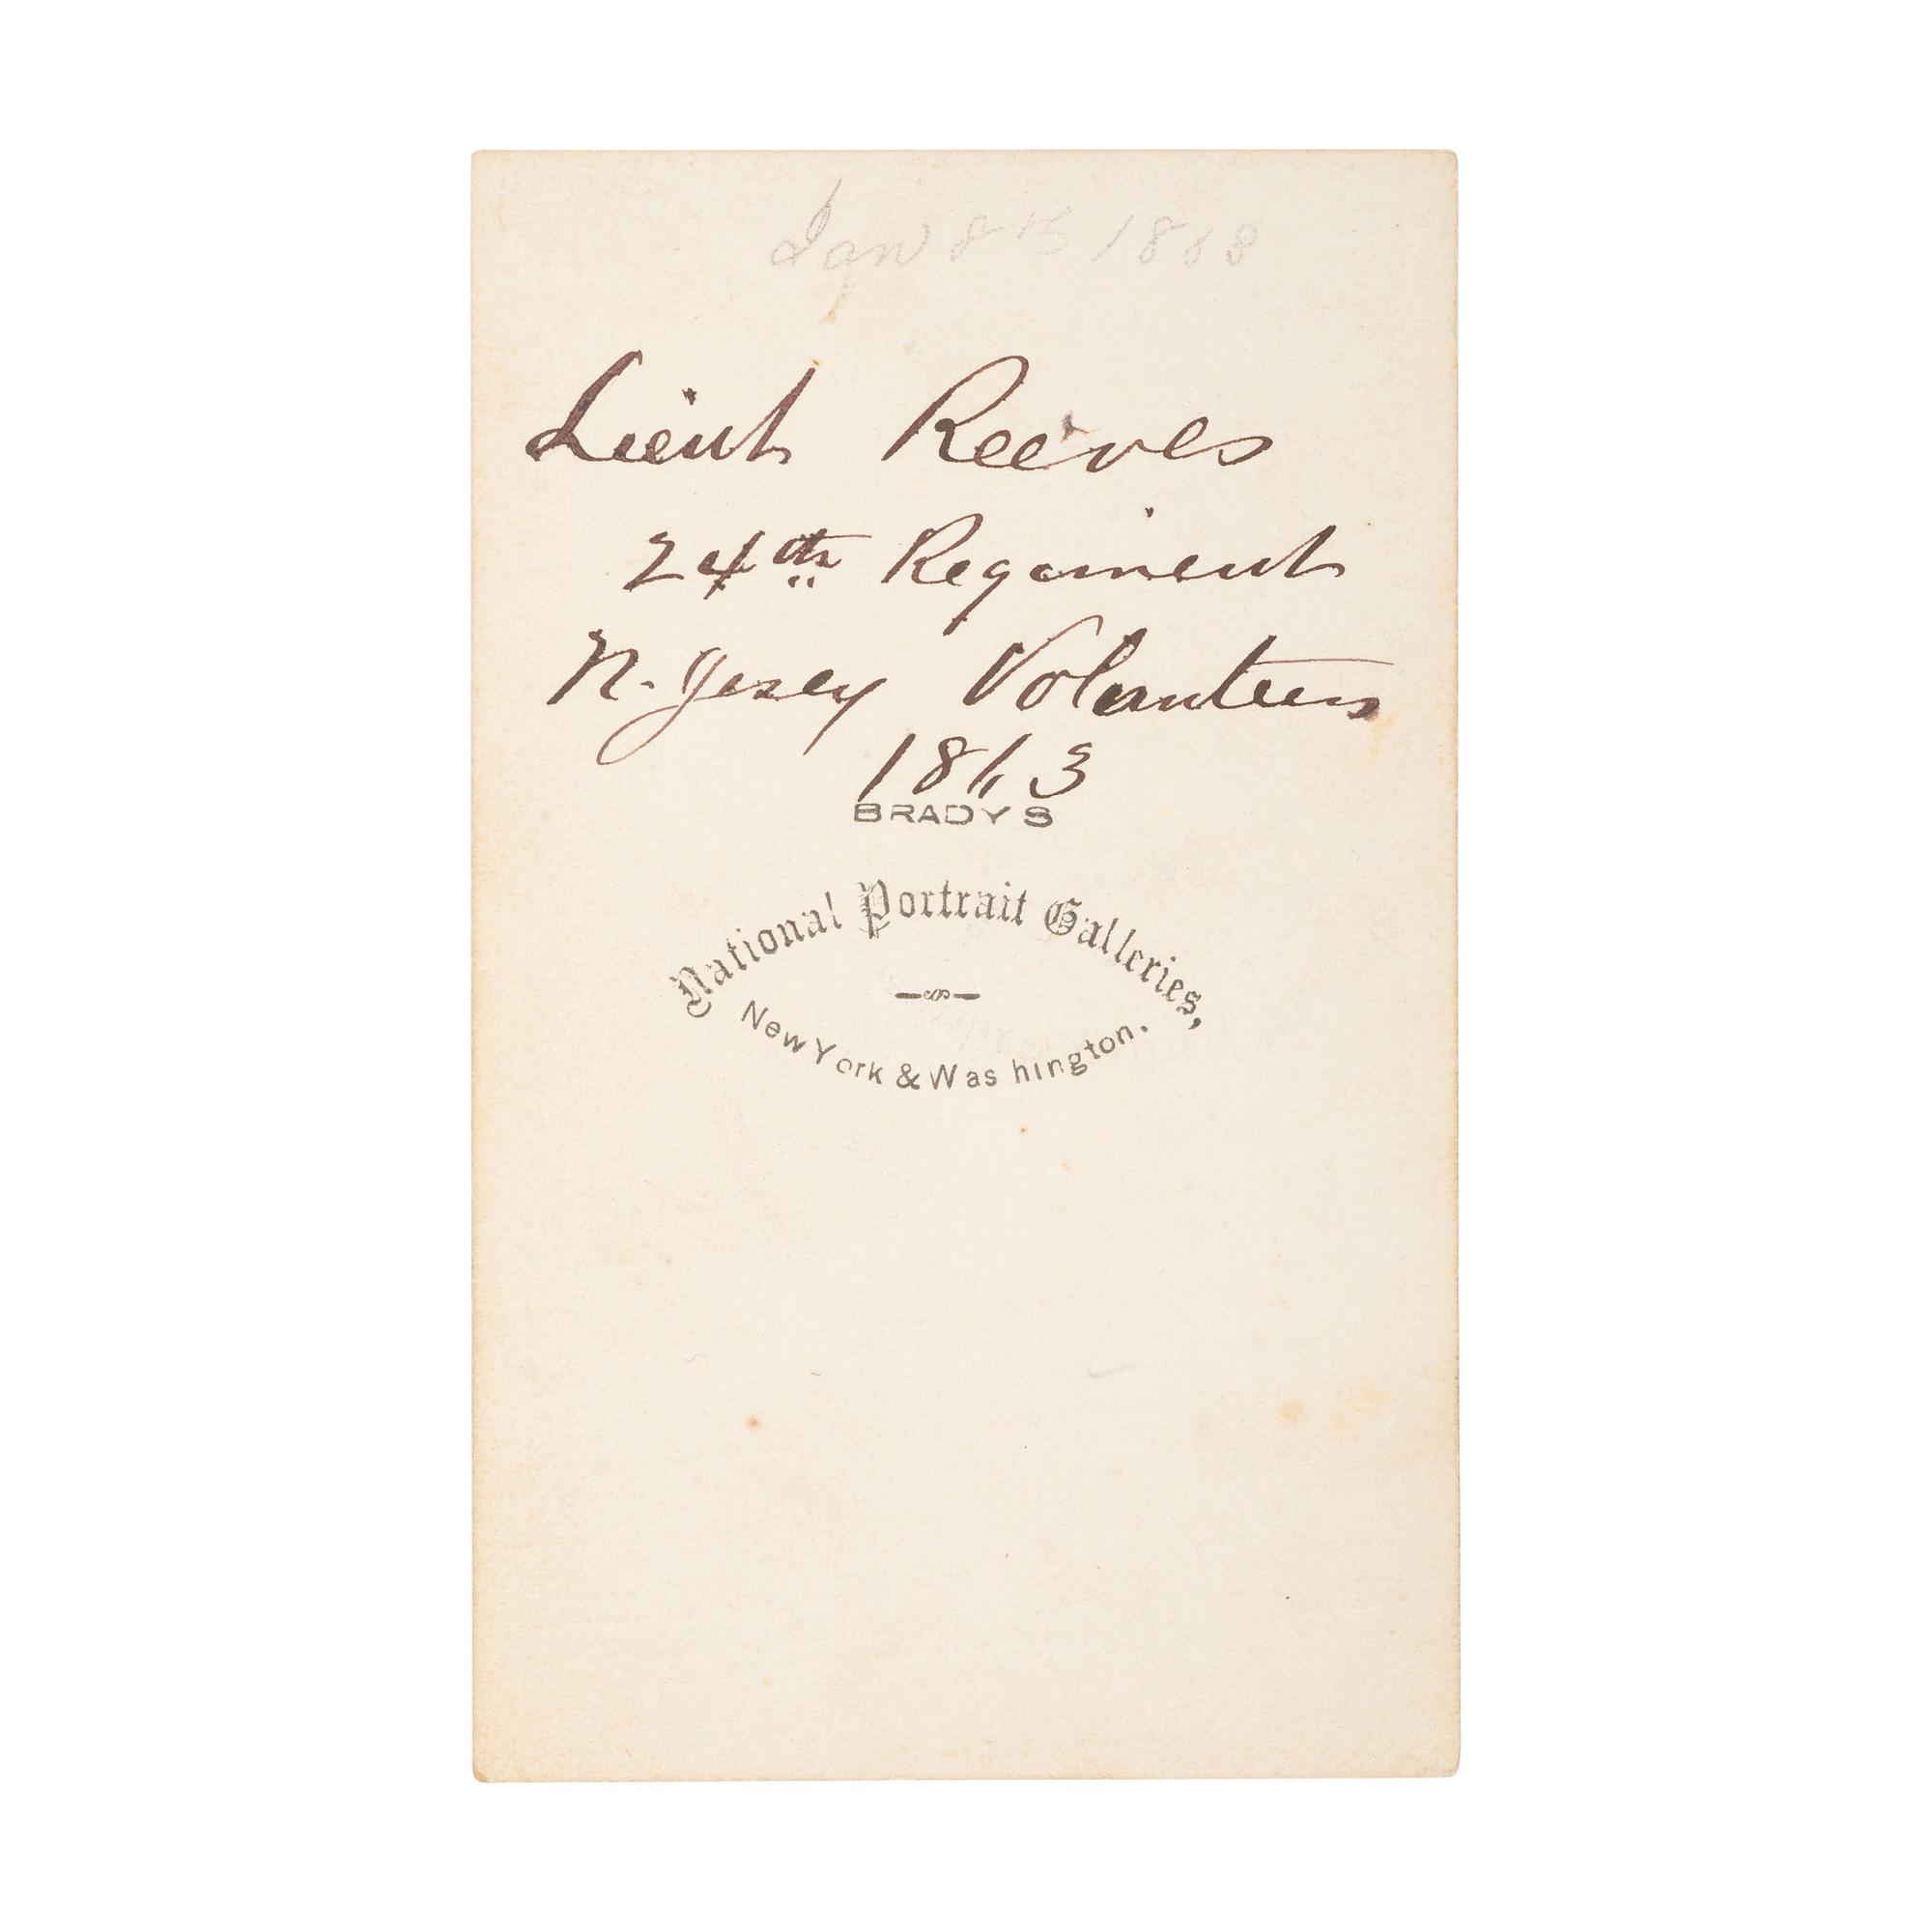 Jan 8th 1863
Lieut Reeves
24th Regiment
N. Jersey Volunteers
1863
BRADYS
National Portrait Galleries,
New York & Washington.